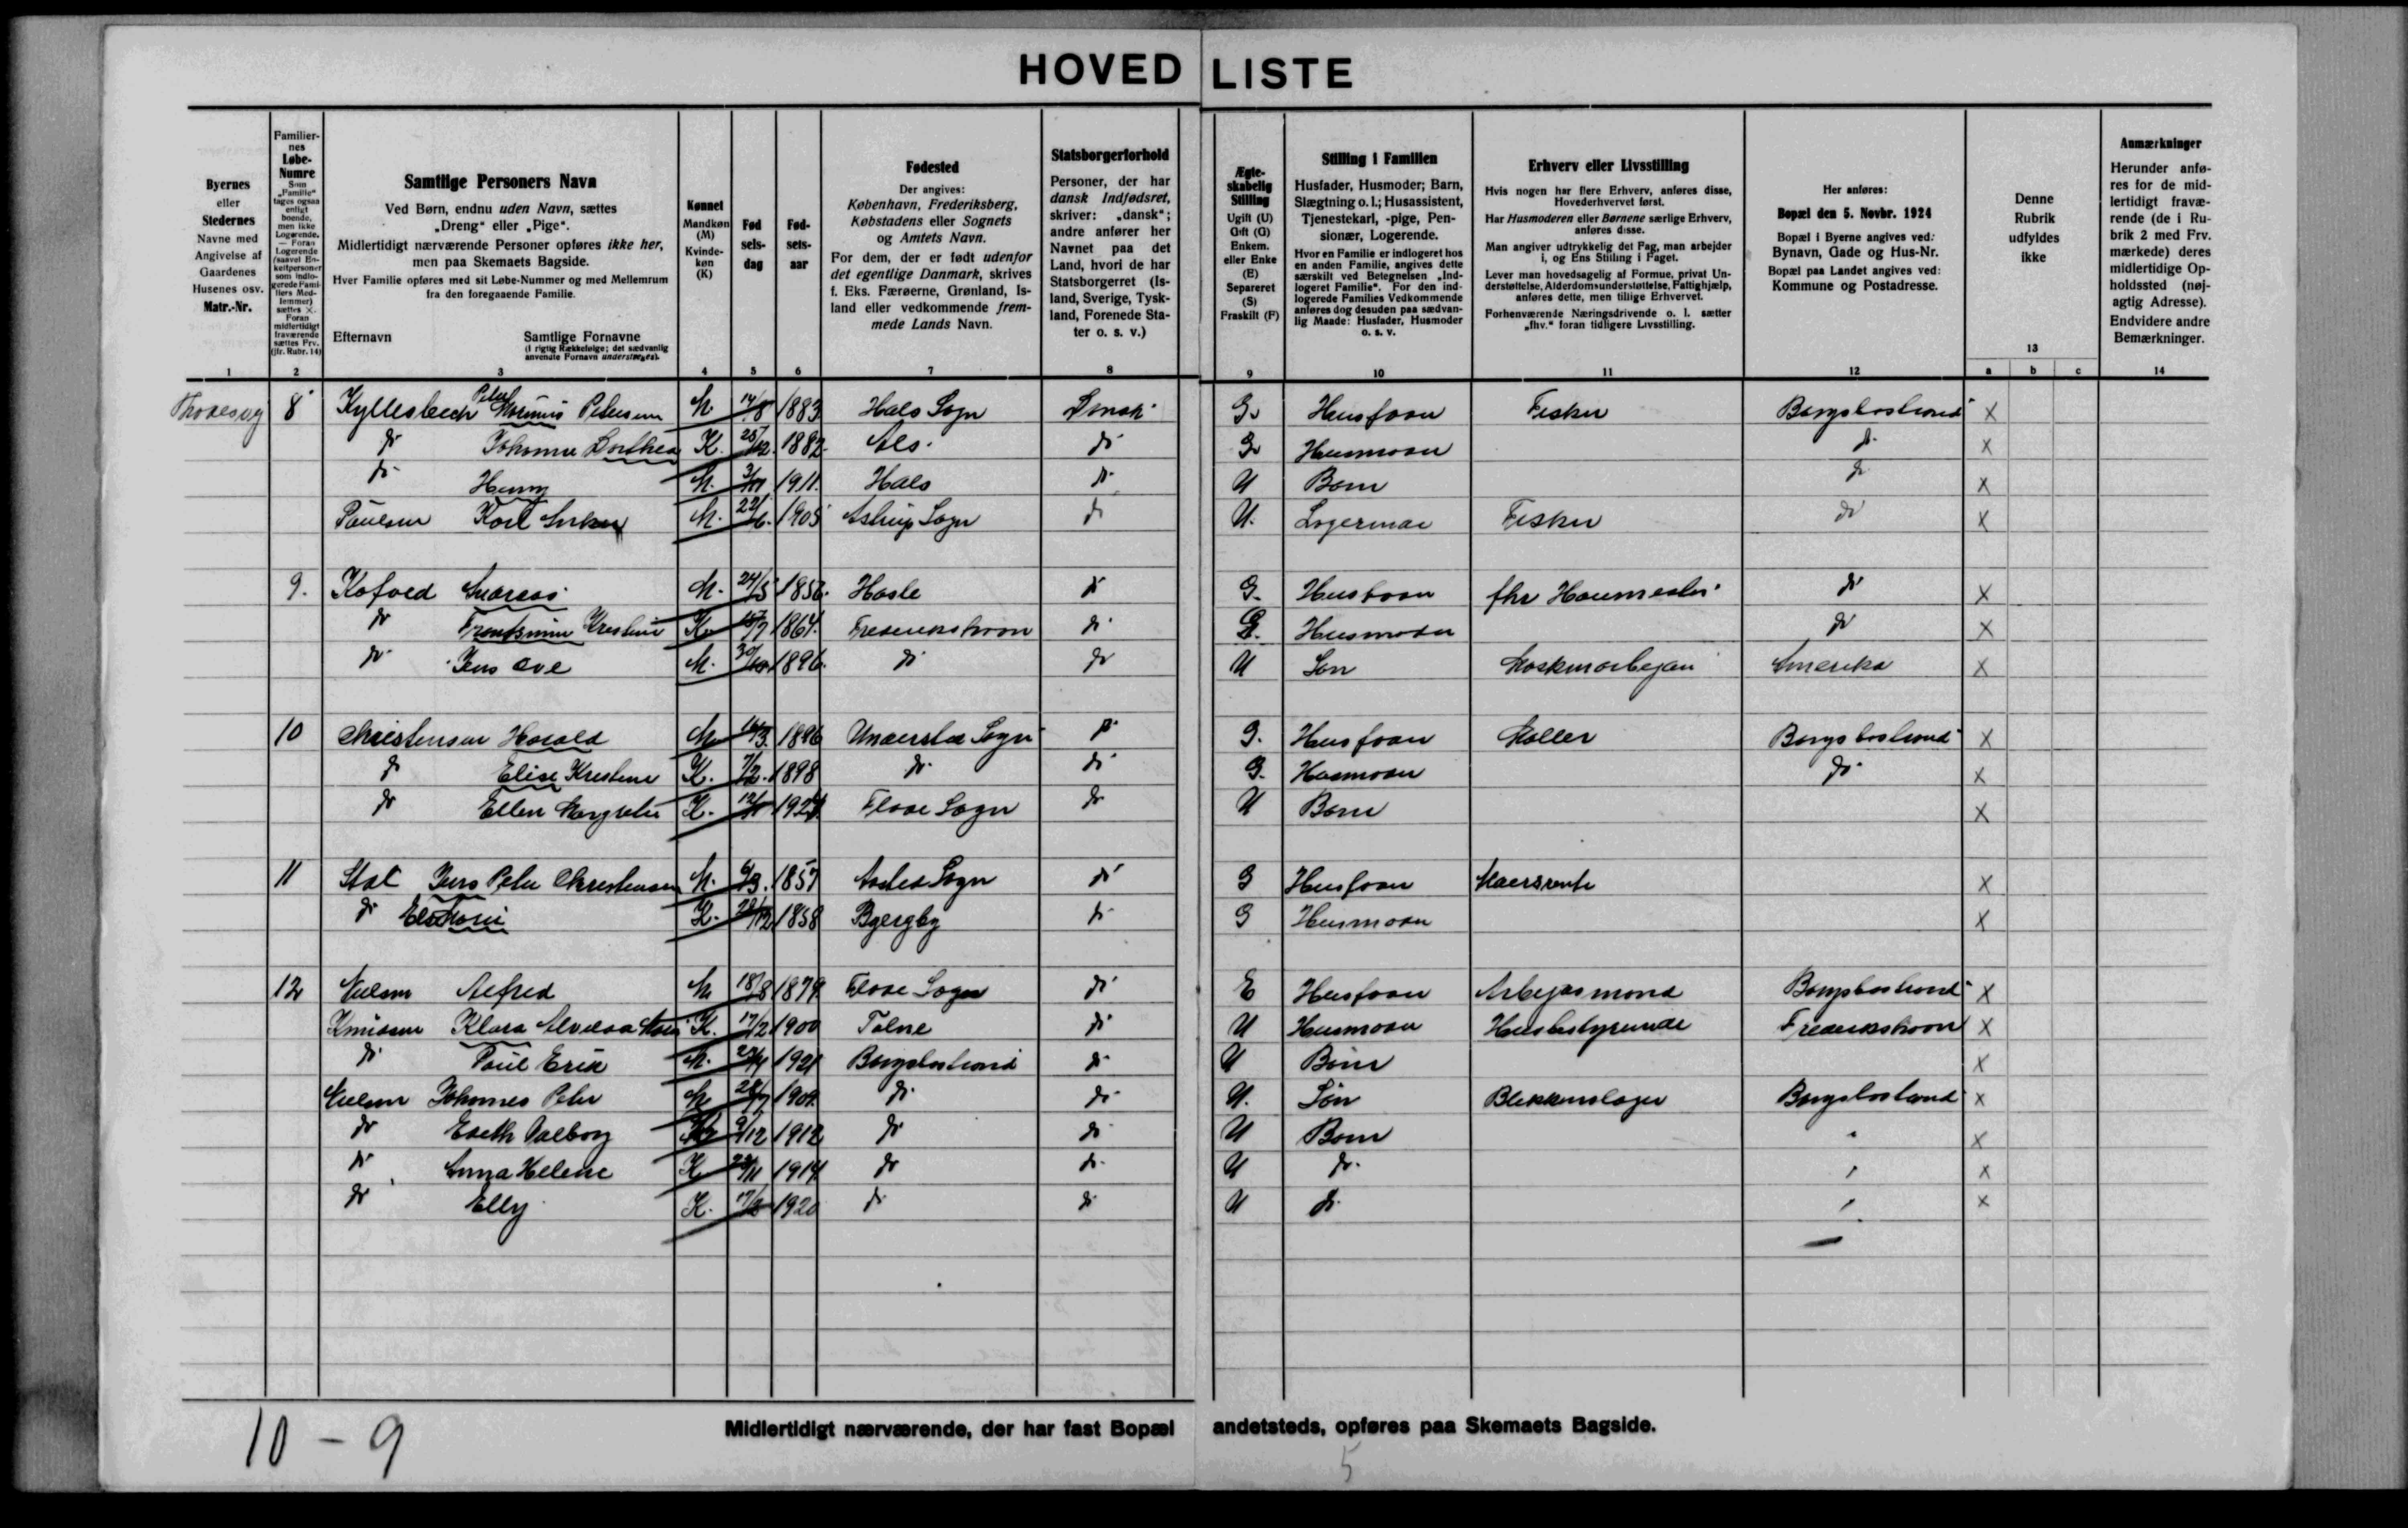 HOVED LISTE
Byernes eller Stedernes Navne med Angivelse af Gaardenes Husenes osv. Matr.-Nr.
Familiernes Løbe-Numre Som „Familie“ tages ogsaa enligt boende, men ikke Logerende. — Foran Logerende (saavel Enkeltpersoner som indlogerede Familiers Medlemmer) sættes ×. Foran midlertidigt fraværende sættes Frv. (jfr. Rubr. 14)
Samtlige Personers Navn
Ved Børn, endnu uden Navn, sættes „Dreng“ eller „Pige“.
Midlertidigt nærværende Personer opføres ikke her, men paa Skemaets Bagside.
Hver Familie opføres med sit Løbe-Nummer og med Mellemrum fra den foregaaende Familie.
Efternavn Samtlige Fornavne (i rigtig Rækkefølge; det sædvanlig anvendte Fornavn understreges).
Kønnet Mandkøn (M) Kvindekøn (K)
Fødselsdag
Fødselsaar
Fødested
Der angives: København, Frederiksberg, Købstadens eller Sognets og Amtets Navn.
For dem, der er født udenfor det egentlige Danmark, skrives f. Eks. Færøerne, Grønland, Island eller vedkommende fremmede Lands Navn.
Statsborgerforhold
Personer, der har dansk Indfødsret, skriver: „dansk“; andre anfører her Navnet paa det Land, hvori de har Statsborgerret (Island, Sverige, Tyskland, Forenede Stater o. s. v.)
Ægteskabelig Stilling Ugift (U) Gift (G) Enkem. eller Enke (E) Separeret (S) Fraskilt (F)
Stilling i Familien
Husfader, Husmoder; Barn, Slægtning o. l.; Husassistent, Tjenestekarl, -pige, Pensionær, Logerende.
Hvor en Familie er indlogeret hos en anden Familie, angives dette særskilt ved Betegnelsen „Indlogeret Familie“. For den indlogerede Families Vedkommende anføres dog desuden paa sædvanlig Maade: Husfader, Husmoder o. s. v.
Erhverv eller Livsstilling
Hvis nogen har flere Erhverv, anføres disse, Hovederhvervet først.
Har Husmoderen eller Børnene særlige Erhverv, anføres disse.
Man angiver udtrykkelig det Fag, man arbejder i, og Ens Stilling i Faget.
Lever man hovedsagelig af Formue, privat Understøttelse, Alderdomsunderstøttelse, Fattighjælp, anføres dette, men tillige Erhvervet.
Forhenværende Næringsdrivende o. l. sætter „fhv.“ foran tidligere Livsstilling.
Her anføres: Bopæl den 5. Novbr. 1924
Bopæl i Byerne angives ved: Bynavn, Gade og Hus-Nr.
Bopæl paa Landet angives ved: Kommune og Postadresse.
Denne Rubrik udfyldes ikke
Anmærkninger
Herunder anføres for de midlertidigt fraværende (de i Rubrik 2 med Frv. mærkede) deres midlertidige Opholdssted (nøjagtig Adresse). Endvidere andre Bemærkninger.
1 2 3 4 5 6 7 8 9 10 11 12 13 a b c 14
8 Peter Petersen M. 14/8 1883 Hals Sogn Dansk G. Husfader Fisker ×
do Johanne Dorthea K. 1882 Als do G. Husmoder do ×
do Henny 1911 Hals do U Barn do ×
Poulsen Karl M. 1905 Astrup Sogn do U. Fisker do ×
9. Kofoed Andreas M. 24/5 Hasle do G. Husfader do ×
do Kristine K. 1864 Frederikshavn do G. Husmoder do ×
do Jens Ove M. 1896 do do U Søn Maskinarbejder Amerika ×
10 Christensen Harald M. 1896 Understed Sogn do G. Husfader Møller ×
do Elise Kristine K. 1898 do do G. Husmoder do ×
do Ellen Margrete K. Flade Sogn do U Barn ×
11 Jens Peter Christensen M. 1857 Aasted Sogn do G Husfader Aldersrente ×
do K. 1858 Bjergby do G Husmoder ×
12 Nielsen Alfred M 18/8 1879 Flade Sogn do E Husfader Arbejdsmand ×
Knudsen Klara K. 17/2 1900 Tolne do U Husmoder Husbestyrerinde Frederikshavn ×
do Poul Erik M. 1921 do U Barn ×
Nielsen Johannes Peter M do do U. Søn Blikkenslager ×
do Edith Valborg 9/12 1912 do do U Barn " ×
do Anna Helene K 1914 do do U do " ×
do Elly K. 1920 do do U do " ×
Midlertidigt nærværende, der har fast Bopæl andetsteds, opføres paa Skemaets Bagside.
10 - 9
5